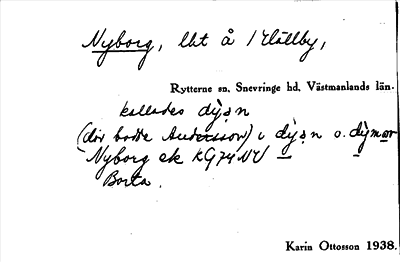 Nyborg, lht å 1 Hällby,
Rytterne sn. Snevringe hd. Västmanlands län.
kallades dỵ̀ạn
(där bodde Andersson) i dỳạn o. dỳmạr
Nyborg ek KG74NV
Borta.
Karin Ottosson 1938.